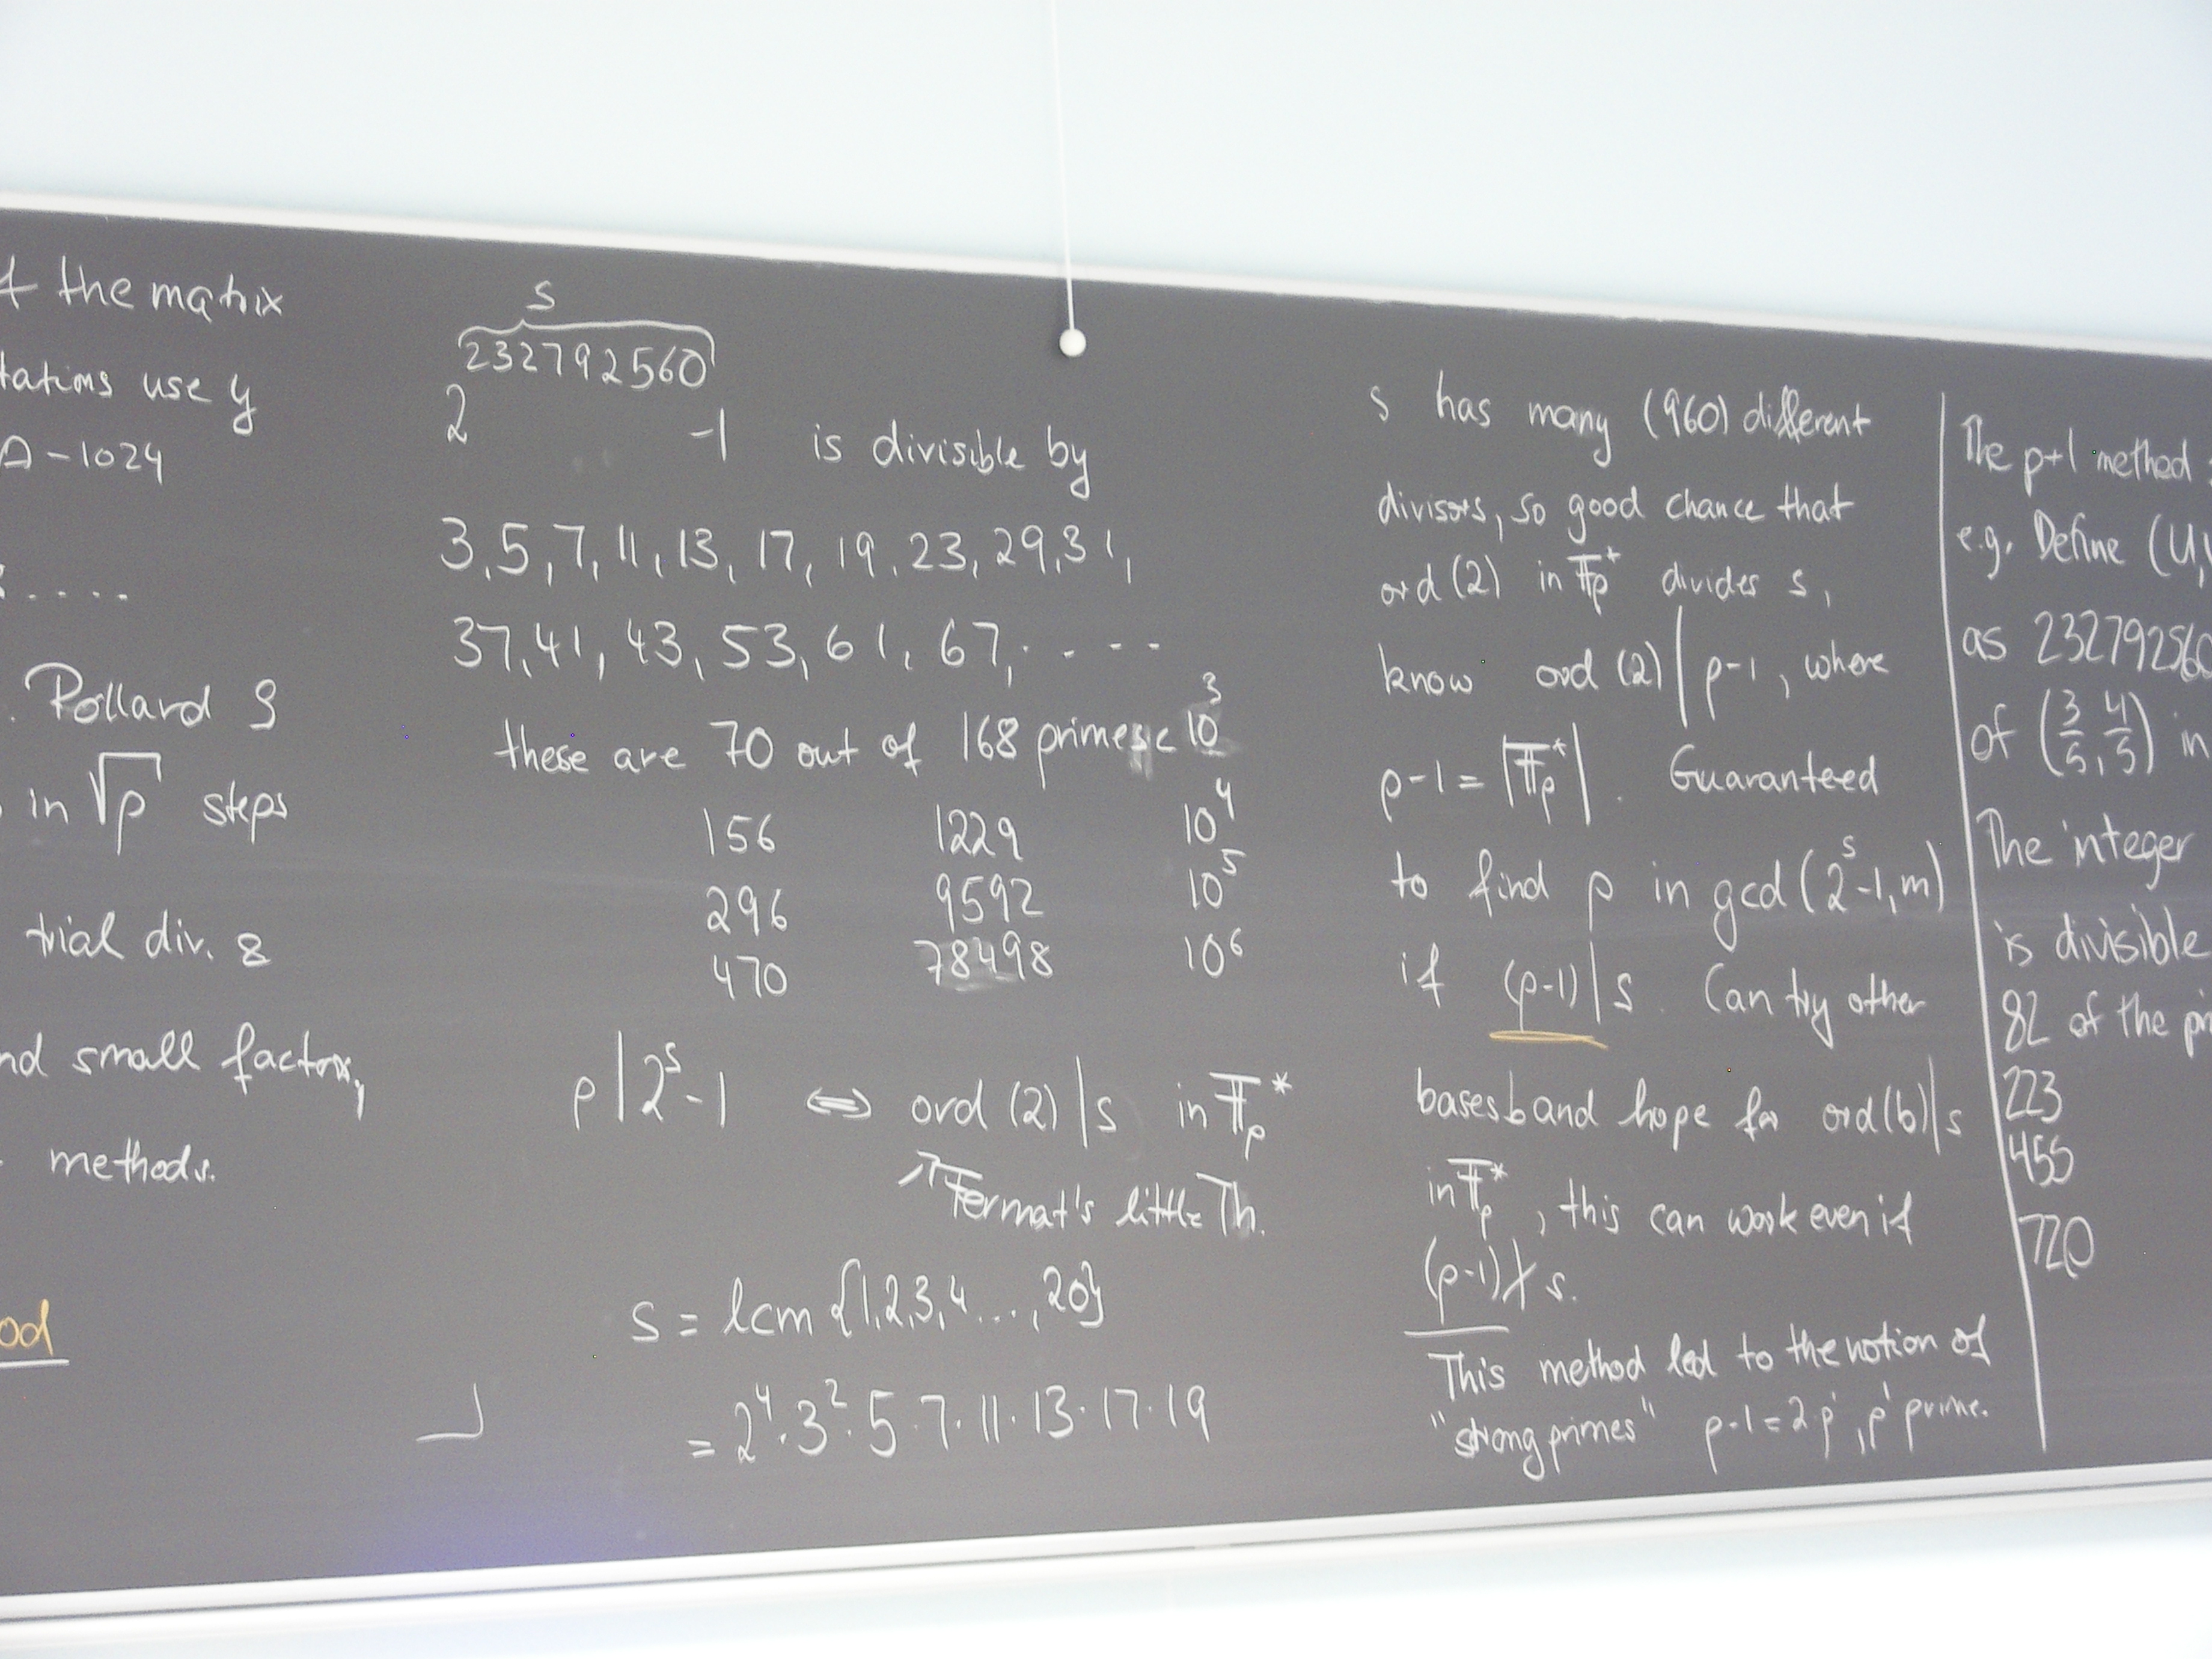 the matrix
use y
A-1024
.....
Pollard ρ
in √p steps
trial div. 8
small factors,
methods.
s
2^232792560 -1 is divisible by
3,5,7,11,13,17,19,23,29,31,
37,41,43,53,61,67,.....
these are 70 out of 168 primes < 10^3
156 1229 10^4
296 9592 10^5
470 78498 10^6
p | 2^s -1 ⇔ ord (2) | s in 𝔽p*
↗ Fermat's little Th.
s = lcm {1,2,3,4...,20}
= 2^4·3^2·5·7·11·13·17·19
s has many (960) different
divisors, so good chance that
ord (2) in 𝔽p* divides s,
know ord (2) | p-1, where
p-1 = |𝔽p*|. Guaranteed
to find p in gcd (2^s-1,m)
if (p-1) | s. Can try other
bases b and hope for ord(b) | s
in 𝔽p*, this can work even if
(p-1) ∤ s.
This method led to the notion of
"strong primes" p-1=2p', p' prime.
The p+1 method
e.g. Define (u,
as 232792560
of (3/5, 4/5) in
The integer
is divisible
82 of the
223
455
720